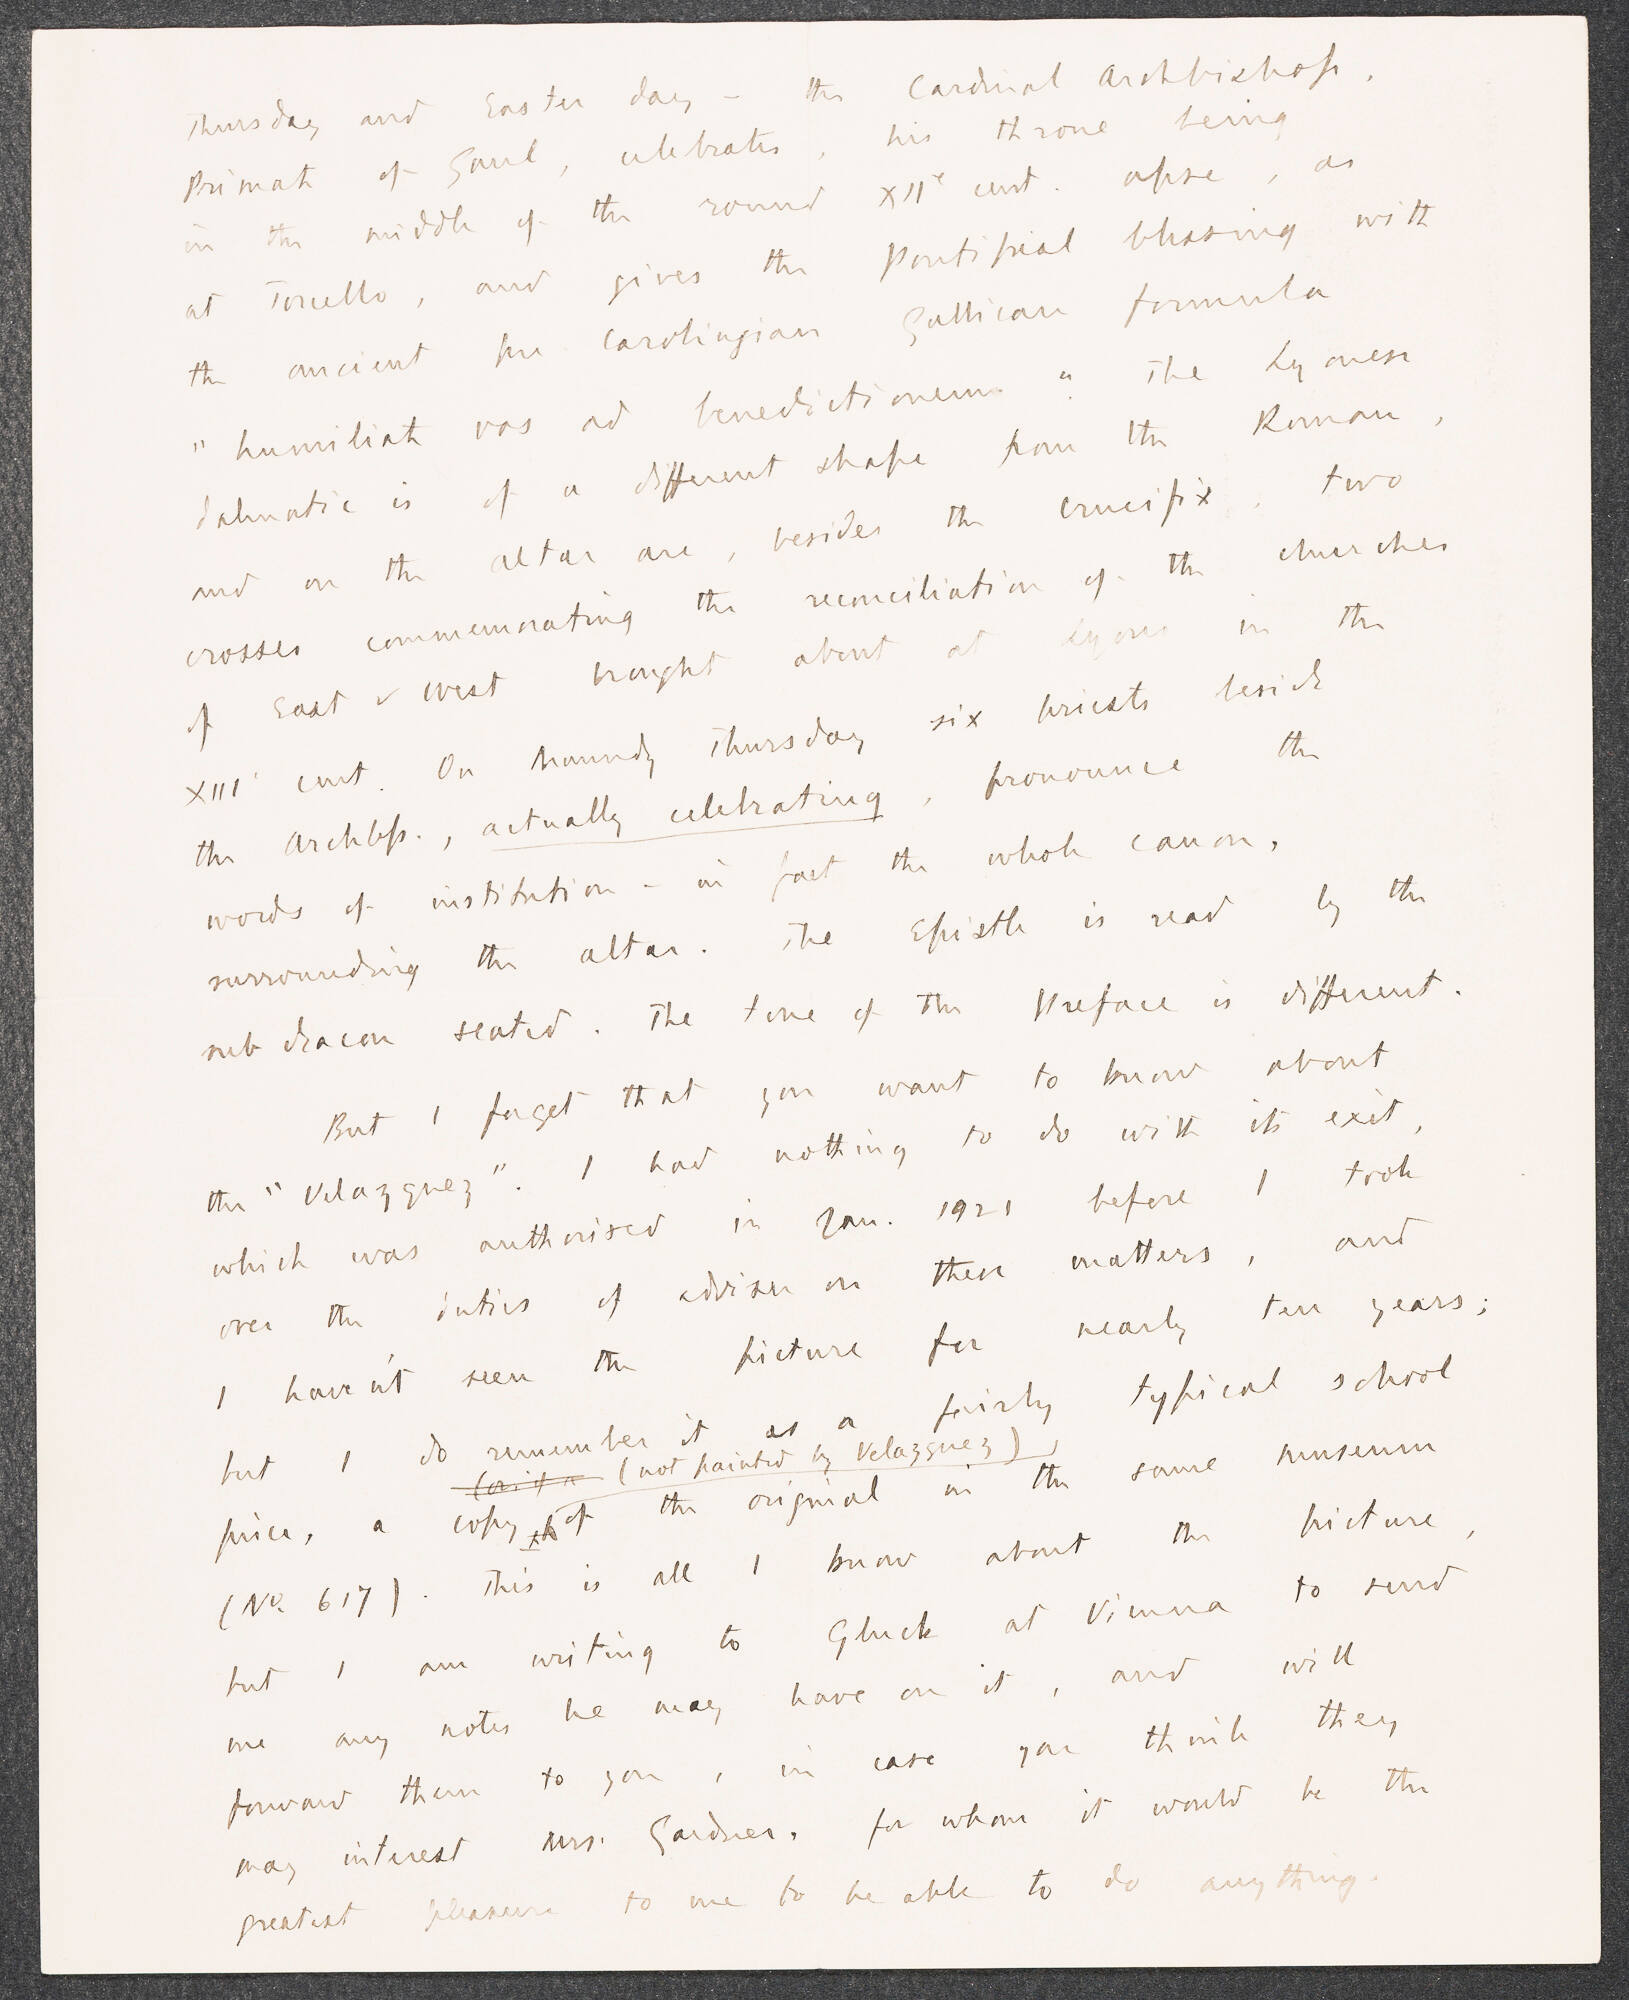 Thursday and Easter day – the Cardinal Archbishop,
Primate of Gaul, celebrates, his throne being
in the middle of the round XIIe cent. apse, as
at Torcello, and gives the Pontifical blessing with
the ancient pre Carolingian Gallican formula
"humiliate vos ad benedictionem". The Lyonese
dalmatic is of a different shape from the Roman,
and on the altar are, besides the crucifix, two
crosses commemorating the reconciliation of the churches
of East & West brought about at Lyons in the
XIII' cent. On Maundy Thursday six priests beside
the Archbp., actually celebrating, pronounce the
words of institution – in fact the whole canon,
surrounding the altar. The Epistle is read by the
sub deacon seated. The tone of the Preface is different.
But I forget that you want to know about
the "Velazquez". I had nothing to do with its exit,
which was authorised in Jan. 1921 before I took
over the duties of adviser on these matters, and
I have n't seen the picture for nearly ten years;
but I do remember it as a fairly typical school
(not painted by Velazquez)
piece, a copy of the original in the same museum
(No. 617). This is all I know about the picture,
but I am writing to Gluck at Vienna to send
me any notes he may have on it, and will
forward them to you, in case you think they
may interest Mrs. Gardner, for whom it would be the
greatest pleasure to me to be able to do anything.